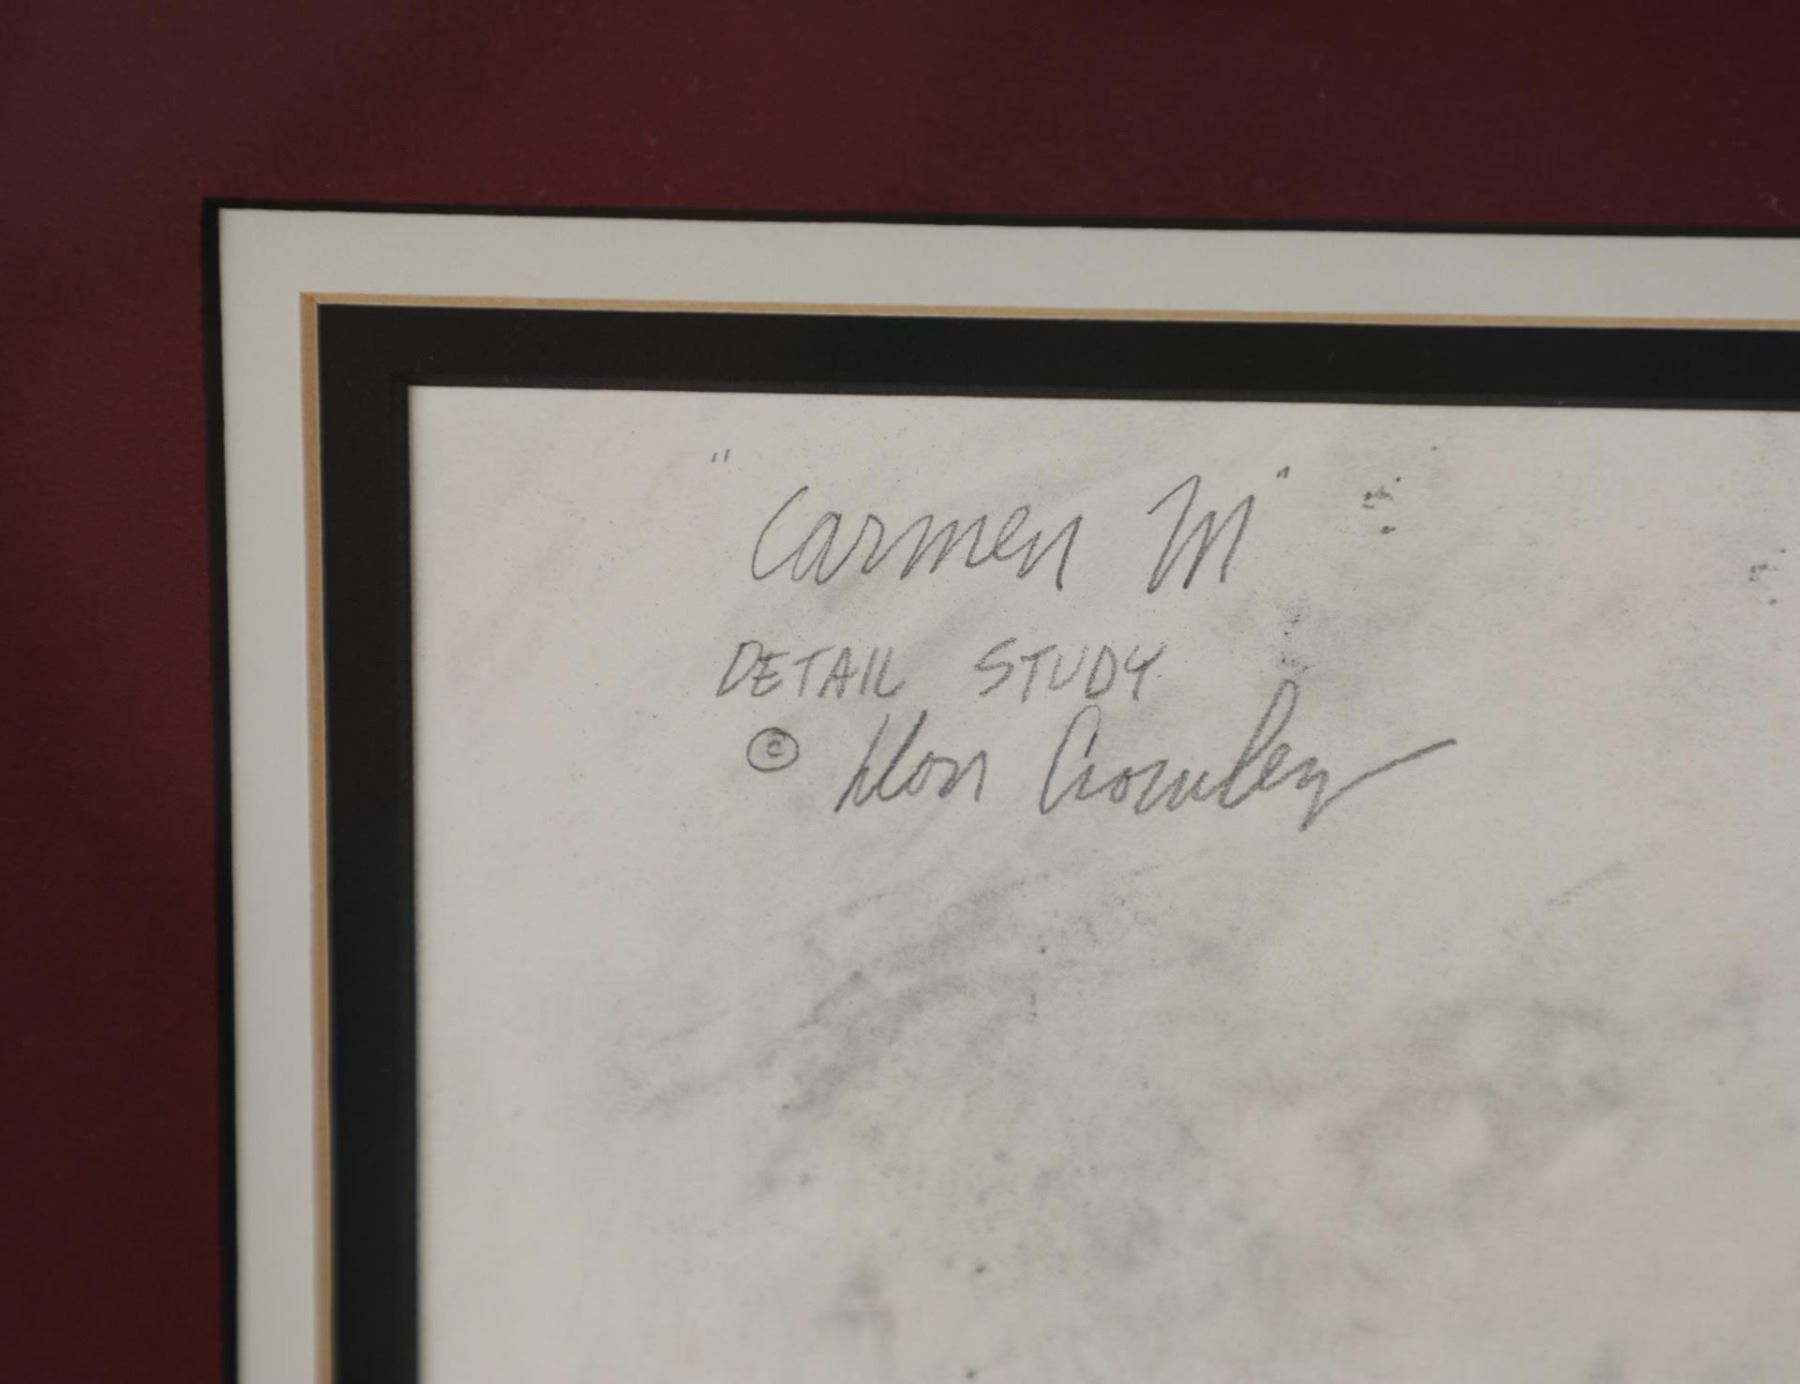 "Carmen M"
DETAIL STUDY
© Don Crowley